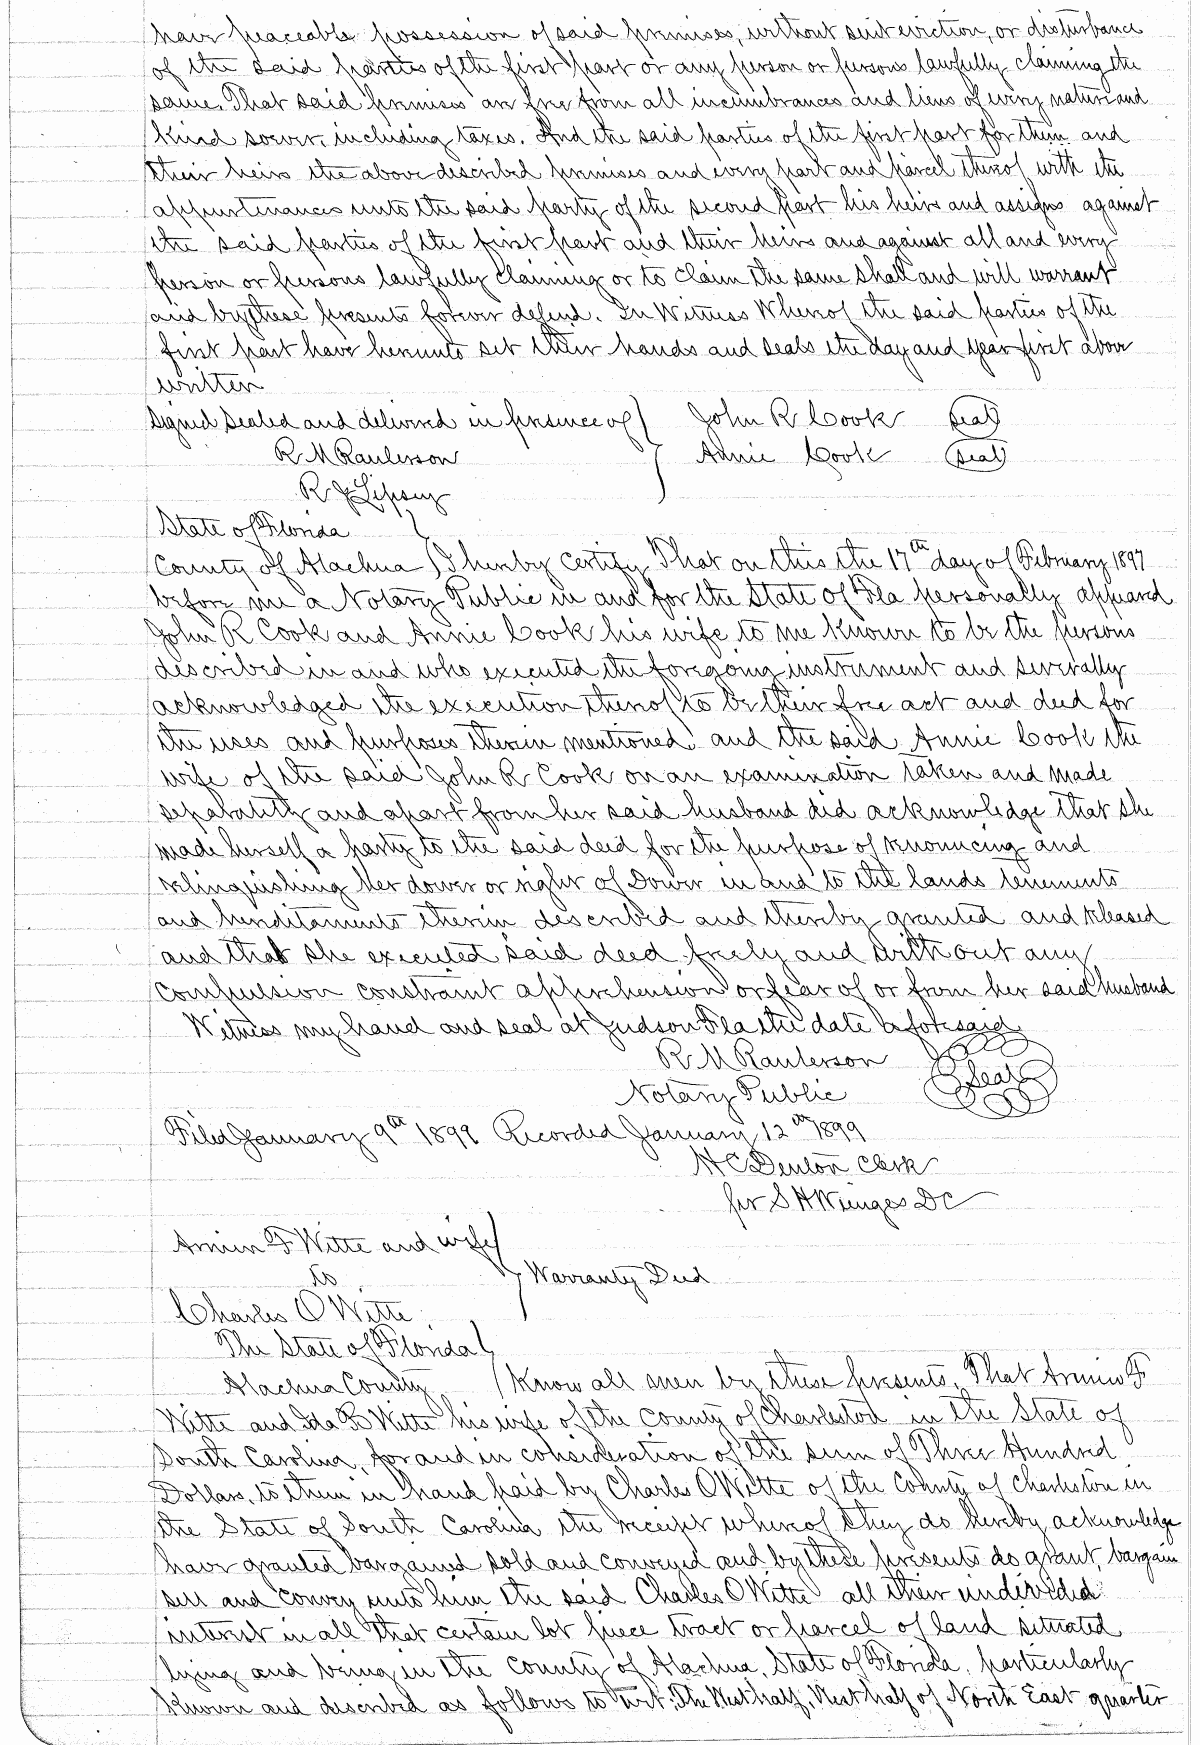 have peaceable possession of said premises, without suit eviction, or disturbance
of the said parties of the first part or any person or persons lawfully claiming the
same. That said premises are free from all incumbrances and liens of every nature and
kind soever, including taxes. And the said parties of the first part for them and
their heirs the above described premises and every part and parcel thereof with the
appurtenances unto the said party of the second part his heirs and assigns against
the said parties of the first part and their heirs and against all and every
person or persons lawfully claiming or to claim the same shall and will warrant
and by these presents forever defend. In Witness Whereof the said parties of the
first part have hereunto set their hands and seals the day and year first above
written
Signed Sealed and delivered in presence of John R Cook Seal
R M Raulerson Annie Cook Seal
R J Lipsey
State of Florida
County of Alachua I hereby certify That on this the 17th day of February 1897
before me a Notary Public in and for the State of Fla personally appeared
John R Cook and Annie Cook his wife to me known to be the persons
described in and who executed the foregoing instrument and severally
acknowledged the execution thereof to be their free act and deed for
the uses and purposes therein mentioned and the said Annie Cook the
wife of the said John R Cook on an examination taken and made
separately and apart from her said husband did acknowledge that she
made herself a party to the said deed for the purpose of renouncing and
relinquishing her dower or right of Dower in and to the lands tenements
and hereditaments therein described and thereby granted and released
and that she executed said deed freely and without any
compulsion constraint apprehension or fear of or from her said husband
Witness my hand and seal at Judson Fla the date aforesaid
R M Raulerson
Notary Public Seal
Filed January 9th 1899 Recorded January 12th 1899
H C Denton Clerk
per S H Wienges DC
Armin F Witte and wife
to Warranty Deed
Charles O Witte
The State of Florida
Alachua County Know all men by these presents, That Armin F
Witte and Ida Witte his wife of the county of Charleston in the State of
South Carolina, for and in consideration of the sum of Three Hundred
Dollars, to them in hand paid by Charles O Witte of the County of Charleston in
the State of South Carolina the receipt whereof they do hereby acknowledge
have granted bargained sold and conveyed and by these presents do grant, bargain
sell and convey unto him the said Charles O Witte all their undivided
interest in all that certain lot piece tract or parcel of land situated
lying and being in the county of Alachua, State of Florida, particularly
known and described as follows to wit: The West half, West half of North East quarter